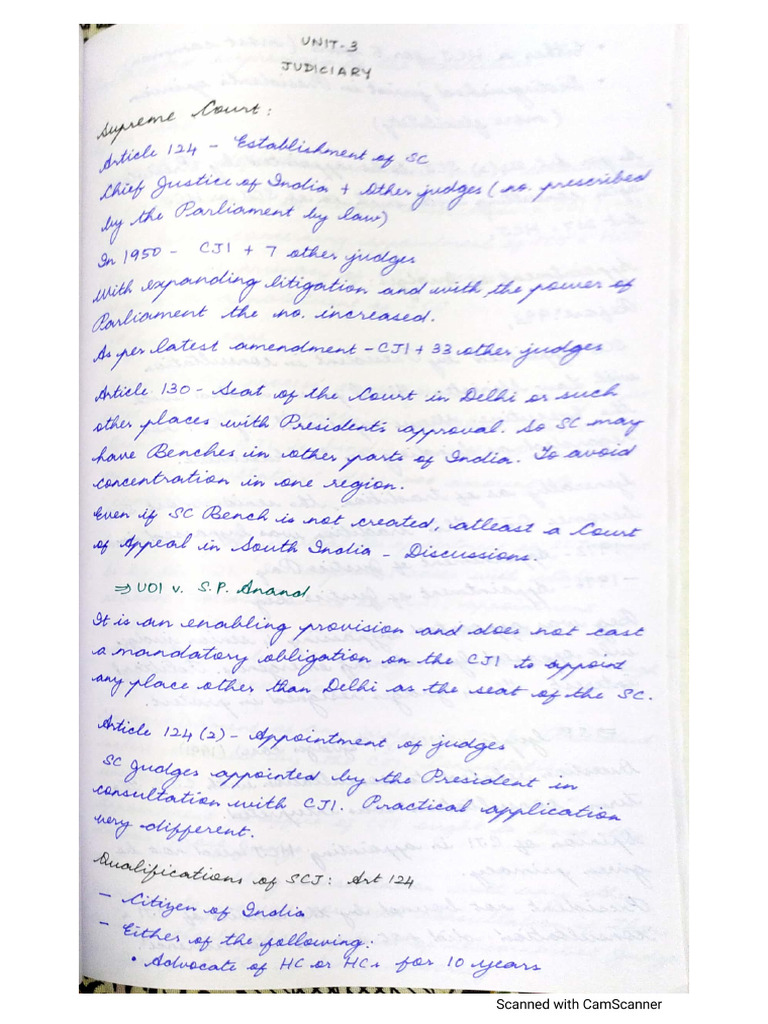 UNIT-3
JUDICIARY
Supreme Court:
Article 124 - Establishment of SC
Chief Justice of India + Other judges (no. prescribed
by the Parliament by law)
In 1950 - CJI + 7 other judges
With expanding litigation and with the power of
Parliament the no. increased.
As per latest amendment - CJI + 33 other judges
Article 130 - Seat of the Court in Delhi or such
other places with President's approval. So SC may
have Benches in other parts of India. To avoid
concentration in one region.
Even if SC Bench is not created, atleast a Court
of Appeal in South India - Discussions.
⇒ UOI v. S.P. Anand
It is an enabling provision and does not cast
a mandatory obligation on the CJI to appoint
any place other than Delhi as the seat of the SC.
Article 124(2) - Appointment of judges
SC judges appointed by the President in
consultation with CJI. Practical application
very different.
Qualifications of SCJ: Art 124
- Citizen of India
- Either of the following:
• Advocate of HC or HCs for 10 years
Scanned with CamScanner